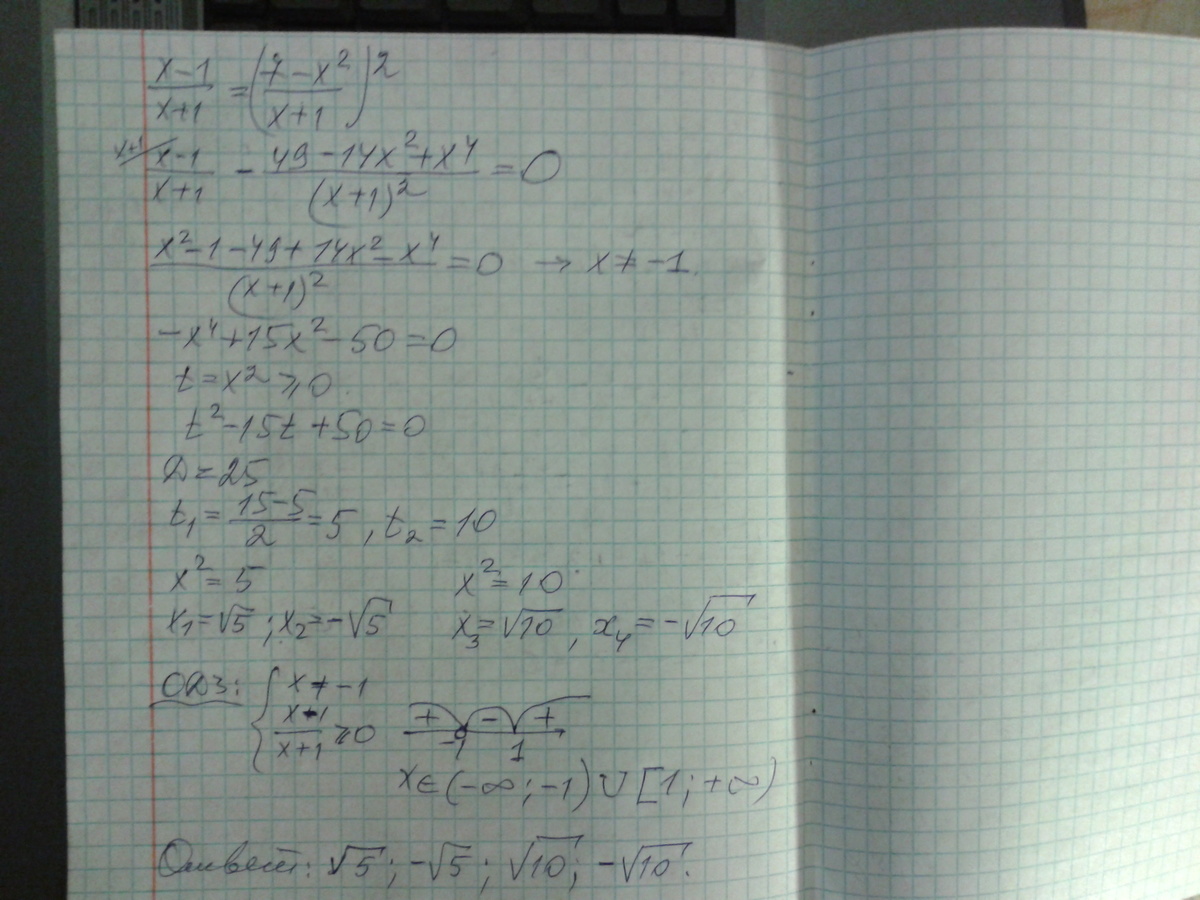 (x-1)/(x+1) = ((7-x²)/(x+1))²
(x-1)/(x+1) - (49-14x²+x⁴)/(x+1)² = 0
(x²-1-49+14x²-x⁴)/(x+1)² = 0 → x≠-1.
-x⁴+15x²-50=0
t=x²⩾0.
t²-15t+50=0
D=25
t₁=(15-5)/2=5, t₂=10
x²=5 x²=10
x₁=√5; x₂=-√5 x₃=√10, x₄=-√10
ОДЗ: { x≠-1
(x-1)/(x+1)⩾0 + - + -1 1
x∈(-∞;-1)∪[1;+∞)
Ответ: √5; -√5; √10; -√10.